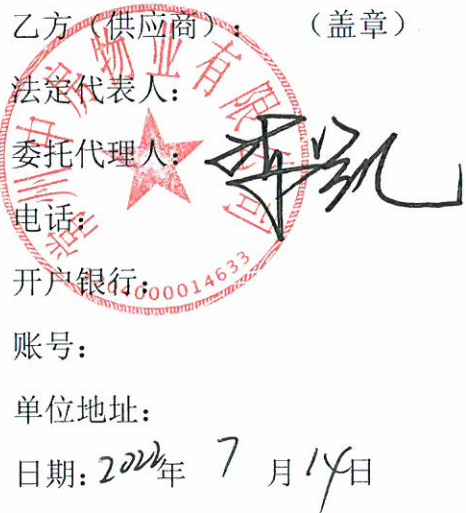 乙方(供应商): (盖章)
法定代表人:
委托代理人:
电话:
开户银行:
账号:
单位地址:
日期: 2022年 7 月 14日
常州中房物业有限公司
000014633